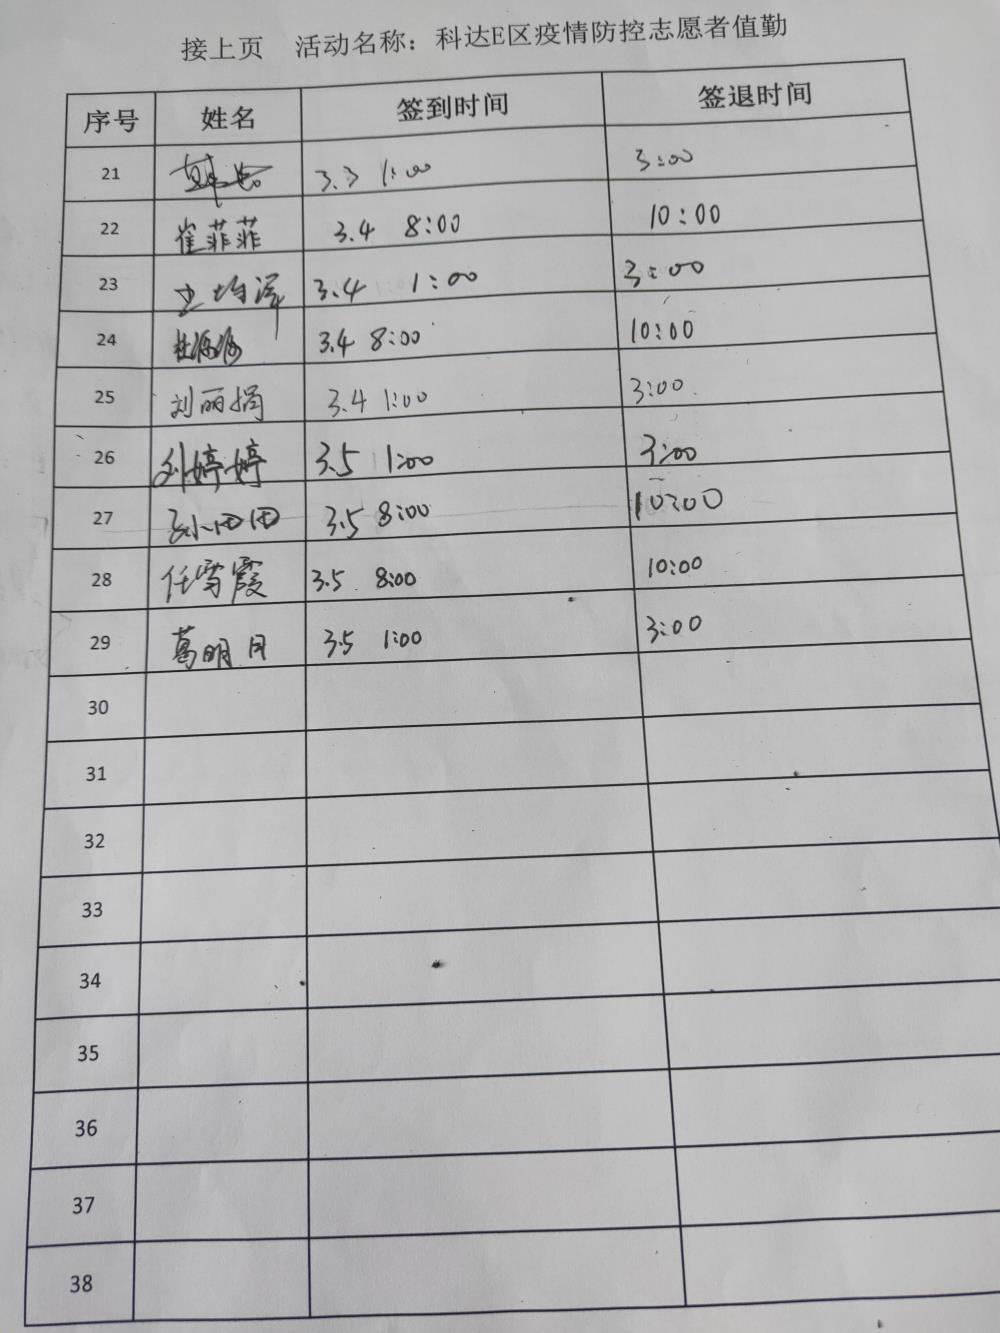 接上页 活动名称：科达E区疫情防控志愿者值勤
序号 姓名 签到时间 签退时间
21 3.3 1:00 3:00
22 崔菲菲 3.4 8:00 10:00
23 3.4 1:00 3:00
24 3.4 8:00 10:00
25 刘丽娟 3.4 1:00 3:00
26 刘婷婷 3.5 1:00 3:00
27 孙田田 3.5 8:00 10:00
28 任雪霞 3.5 8:00 10:00
29 葛明月 3.5 1:00 3:00
30
31
32
33
34
35
36
37
38